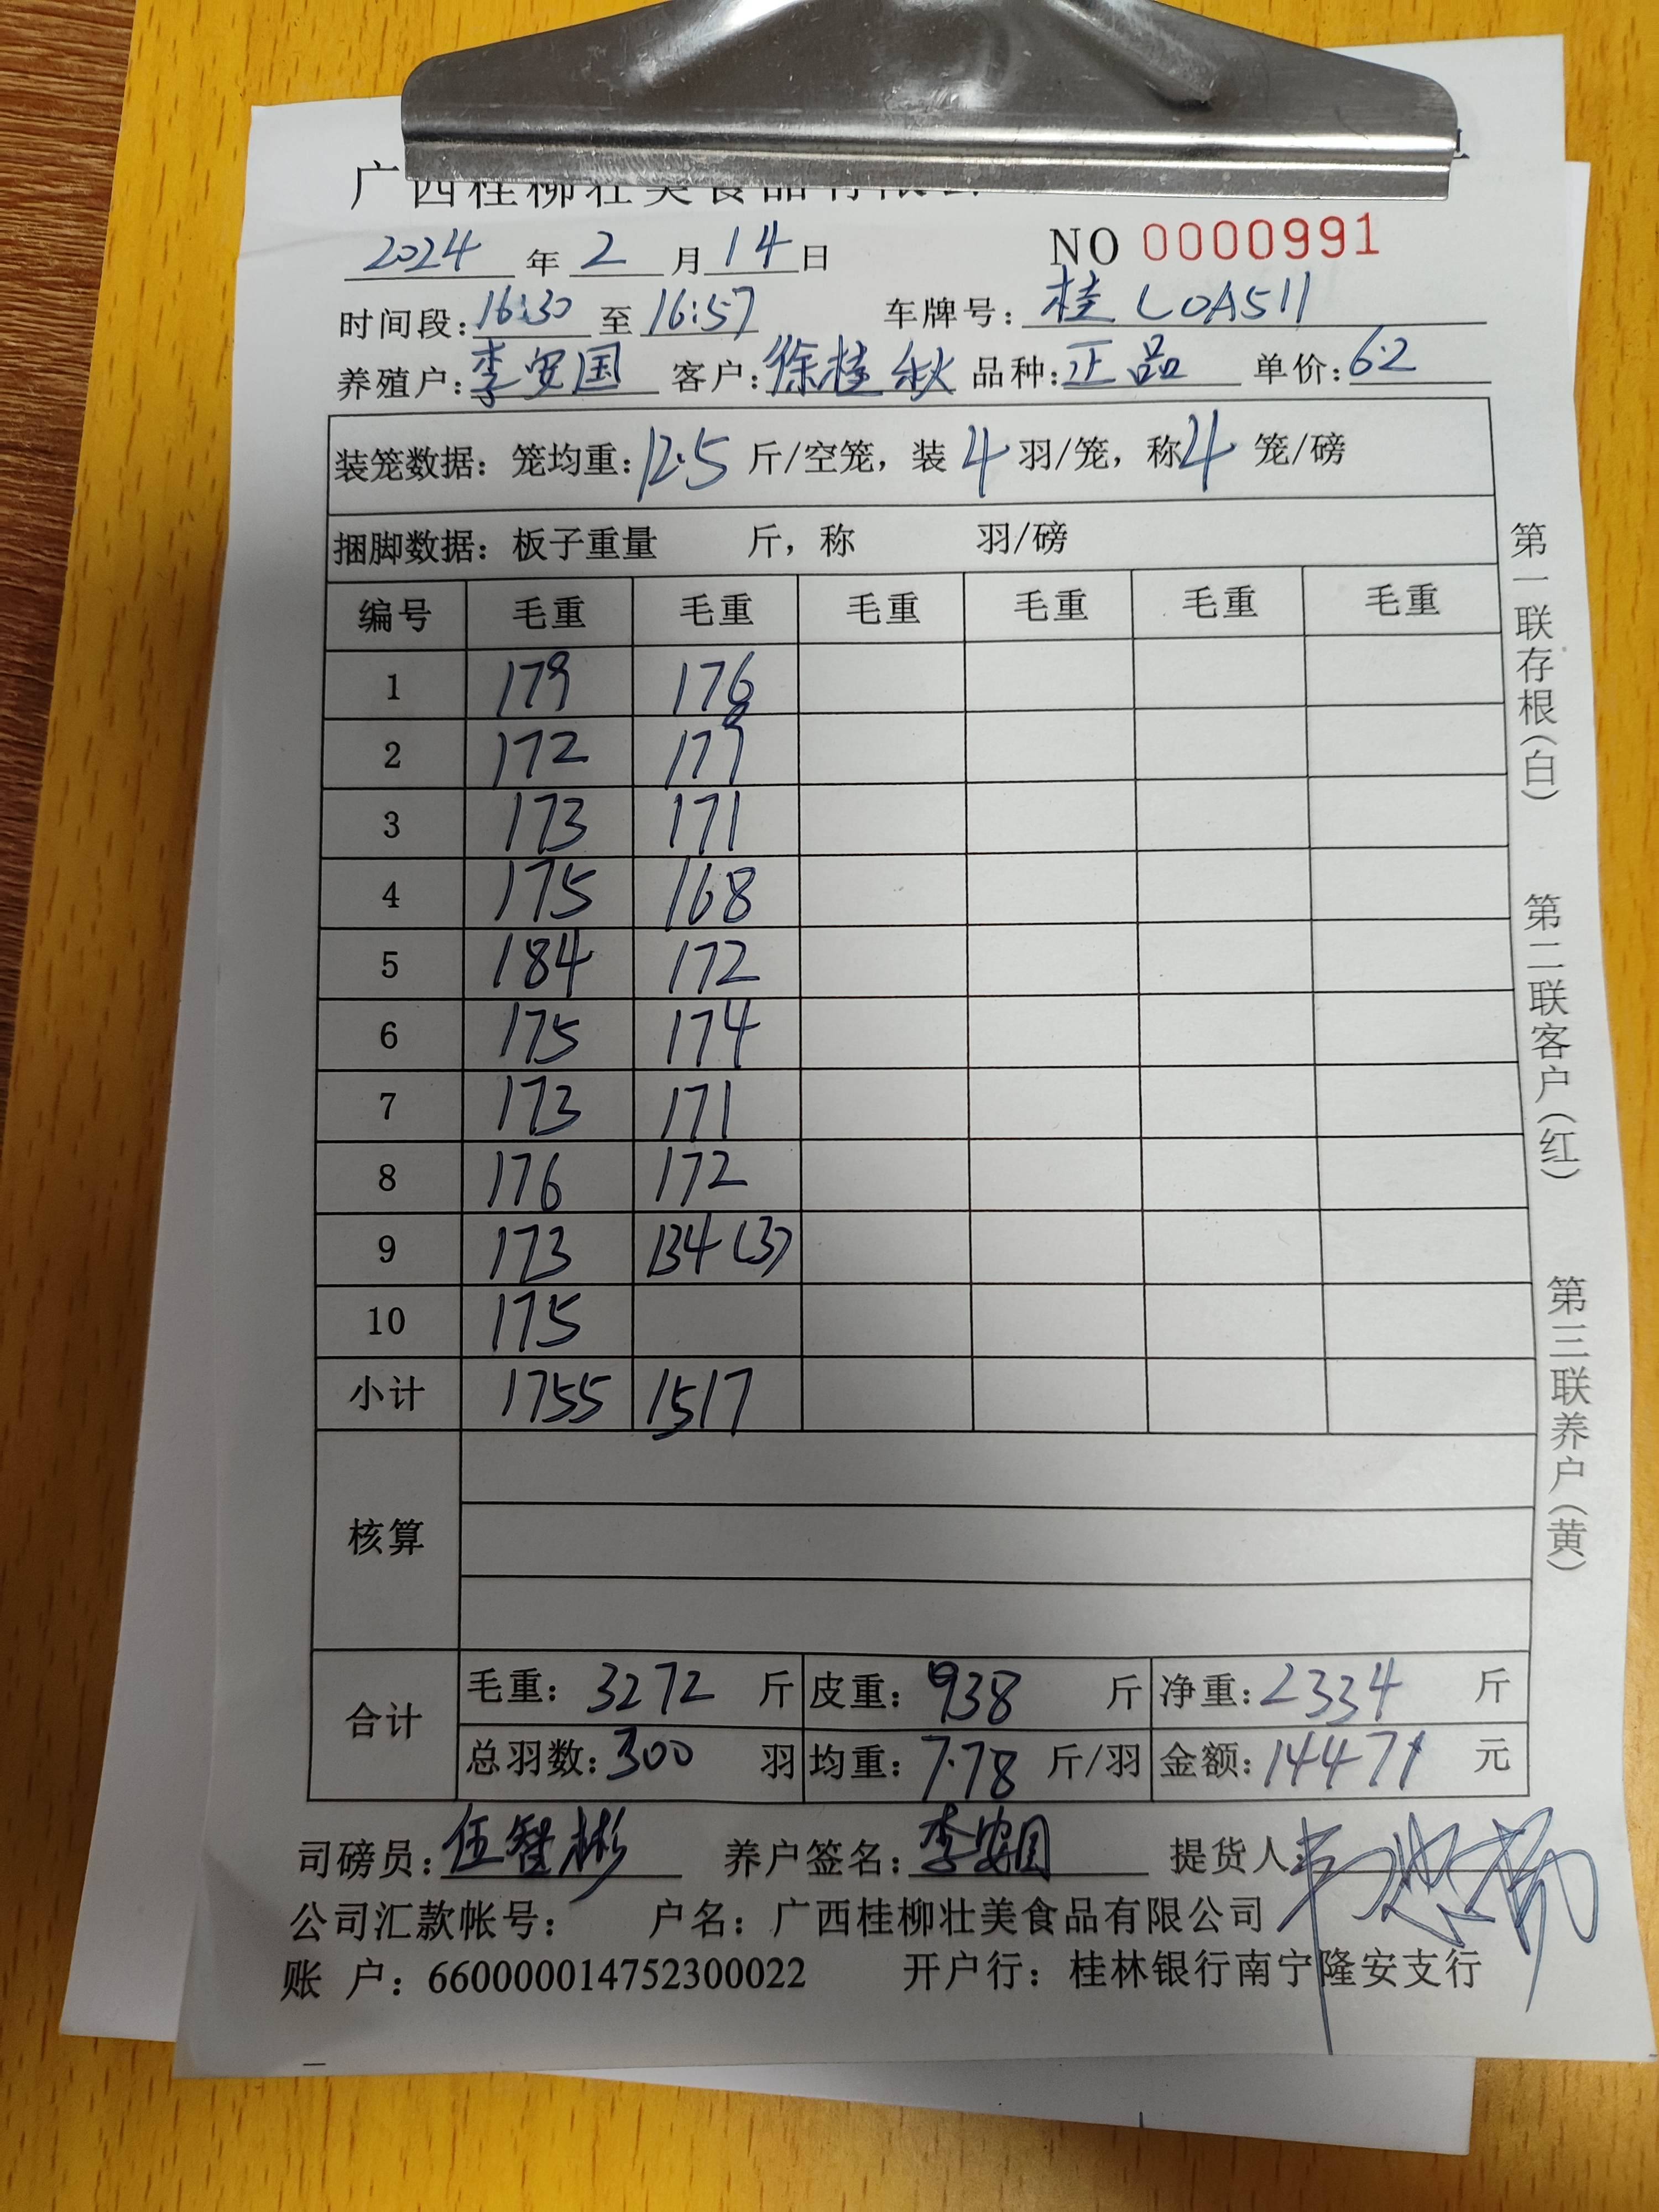 广西桂柳壮美食品有限公
2024年2月14日 NO 0000991
时间段:16:30至16:57 车牌号:桂L0A511
养殖户:李安国 客户:徐桂秋 品种:正品 单价:6.2
装笼数据:笼均重:12.5斤/空笼,装4羽/笼,称4笼/磅
捆脚数据:板子重量 斤,称 羽/磅
编号 毛重 毛重 毛重 毛重 毛重 毛重
1 179 176
2 172 179
3 173 171
4 175 168
5 184 172
6 175 174
7 173 171
8 176 172
9 173 134(3)
10 175
小计 1755 1517
核算
合计 毛重:3272斤 皮重:938斤 净重:2334斤
总羽数:300羽 均重:7.78斤/羽 金额:14471元
司磅员:伍智彬 养户签名:李安国 提货人:
公司汇款帐号: 户名:广西桂柳壮美食品有限公司
账 户:660000014752300022 开户行:桂林银行南宁隆安支行
第一联存根(白) 第二联客户(红) 第三联养户(黄)